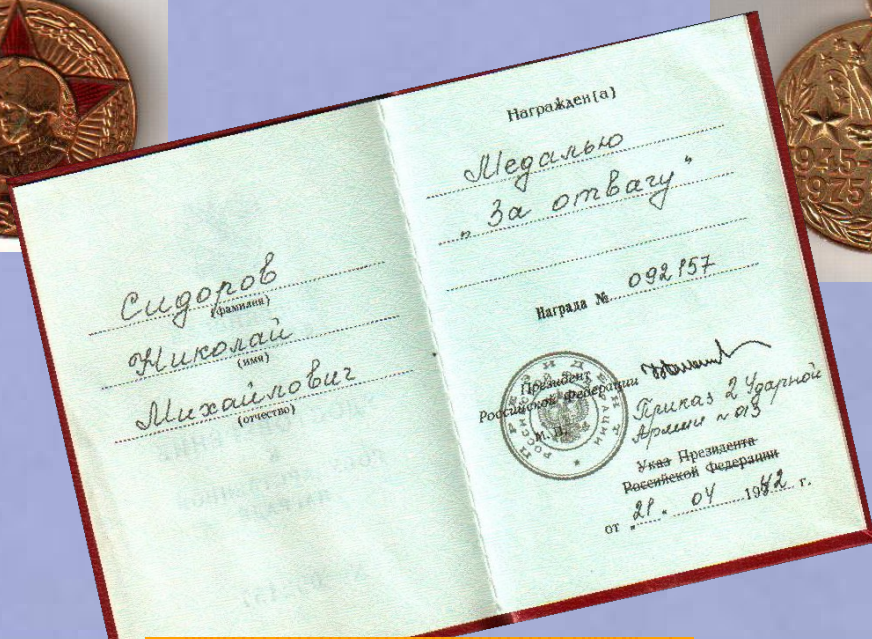 Сидоров
(фамилия)
Николай
(имя)
Михайлович
(отчество)
Награжден(а)
Медалью
„За отвагу“
Награда № 092157
Президент
Российской Федерации
М. П.
Приказ 2 Ударной
Армии № 013
Указ Президента
Российской Федерации
от „21“ 04 1942 г.
1945-
1975